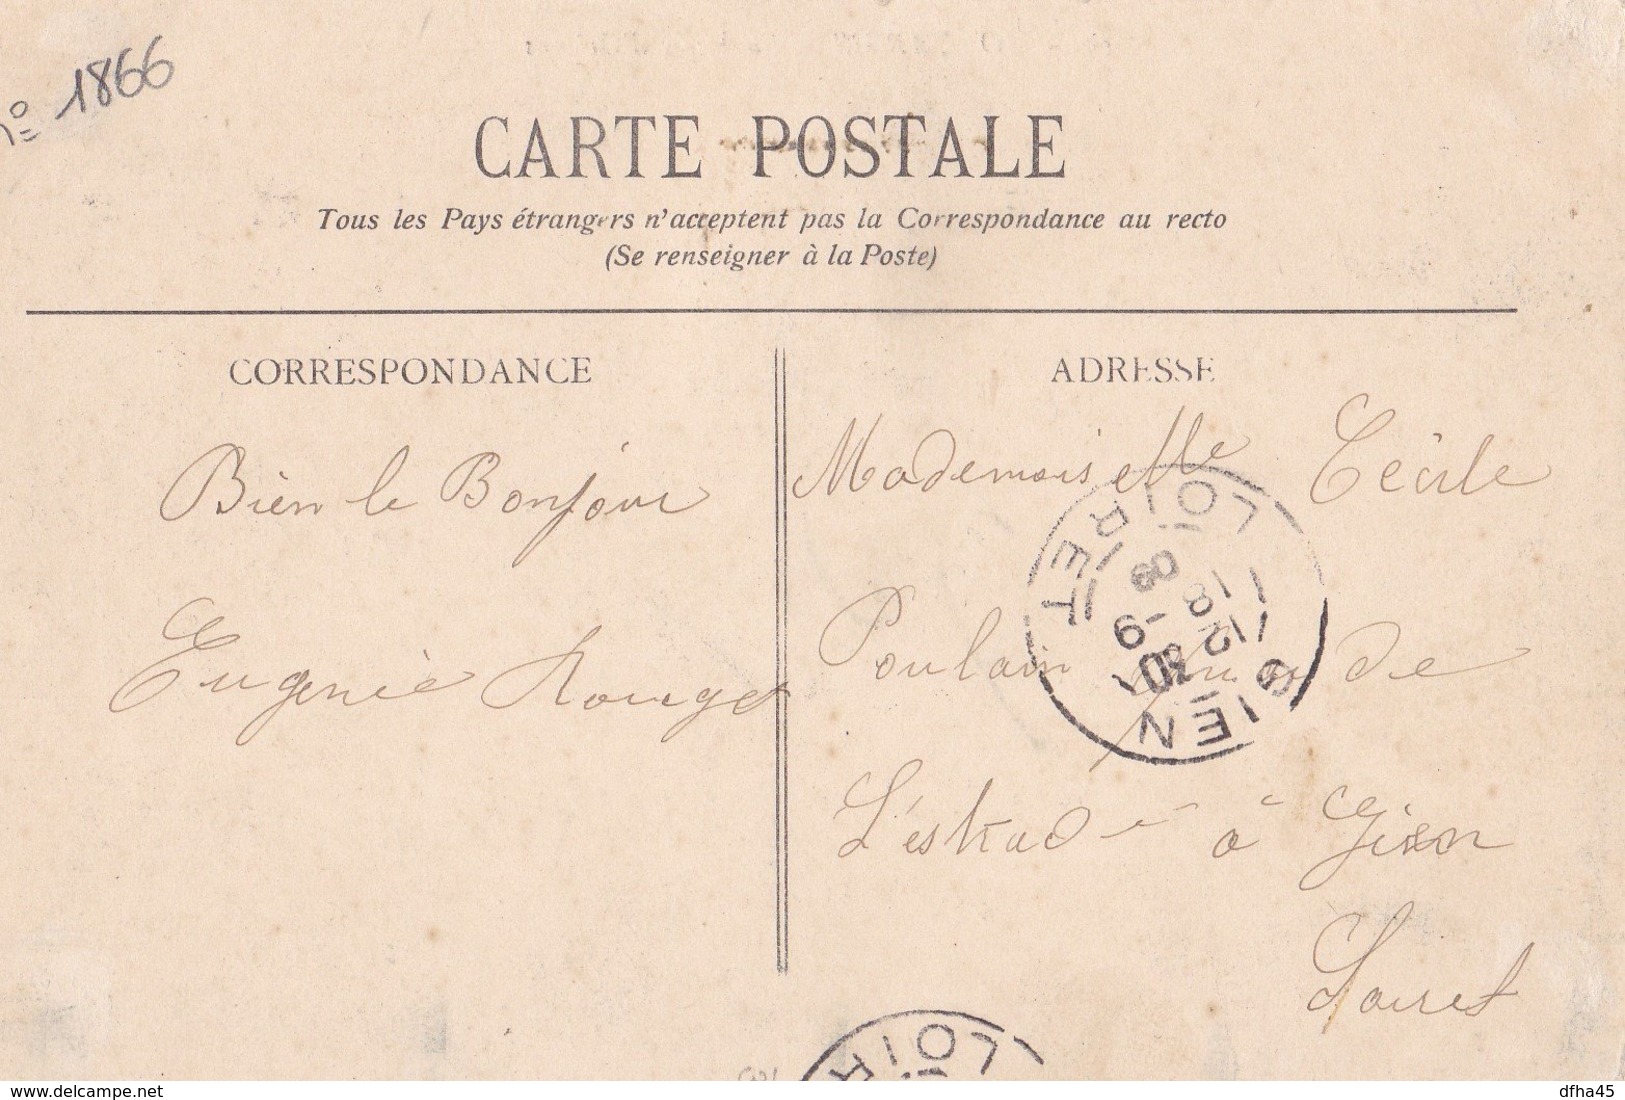 nº 1866
CARTE POSTALE
Tous les Pays étrangers n'acceptent pas la Correspondance au recto
(Se renseigner à la Poste)
CORRESPONDANCE
Bien le Bonjour
Eugenie Rouget
ADRESSE
Mademoiselle Cécile
Poulain de
L'eskad à Gien
Loiret
GIEN
LOIRET
LOIR
www.delcampe.net
dfha45